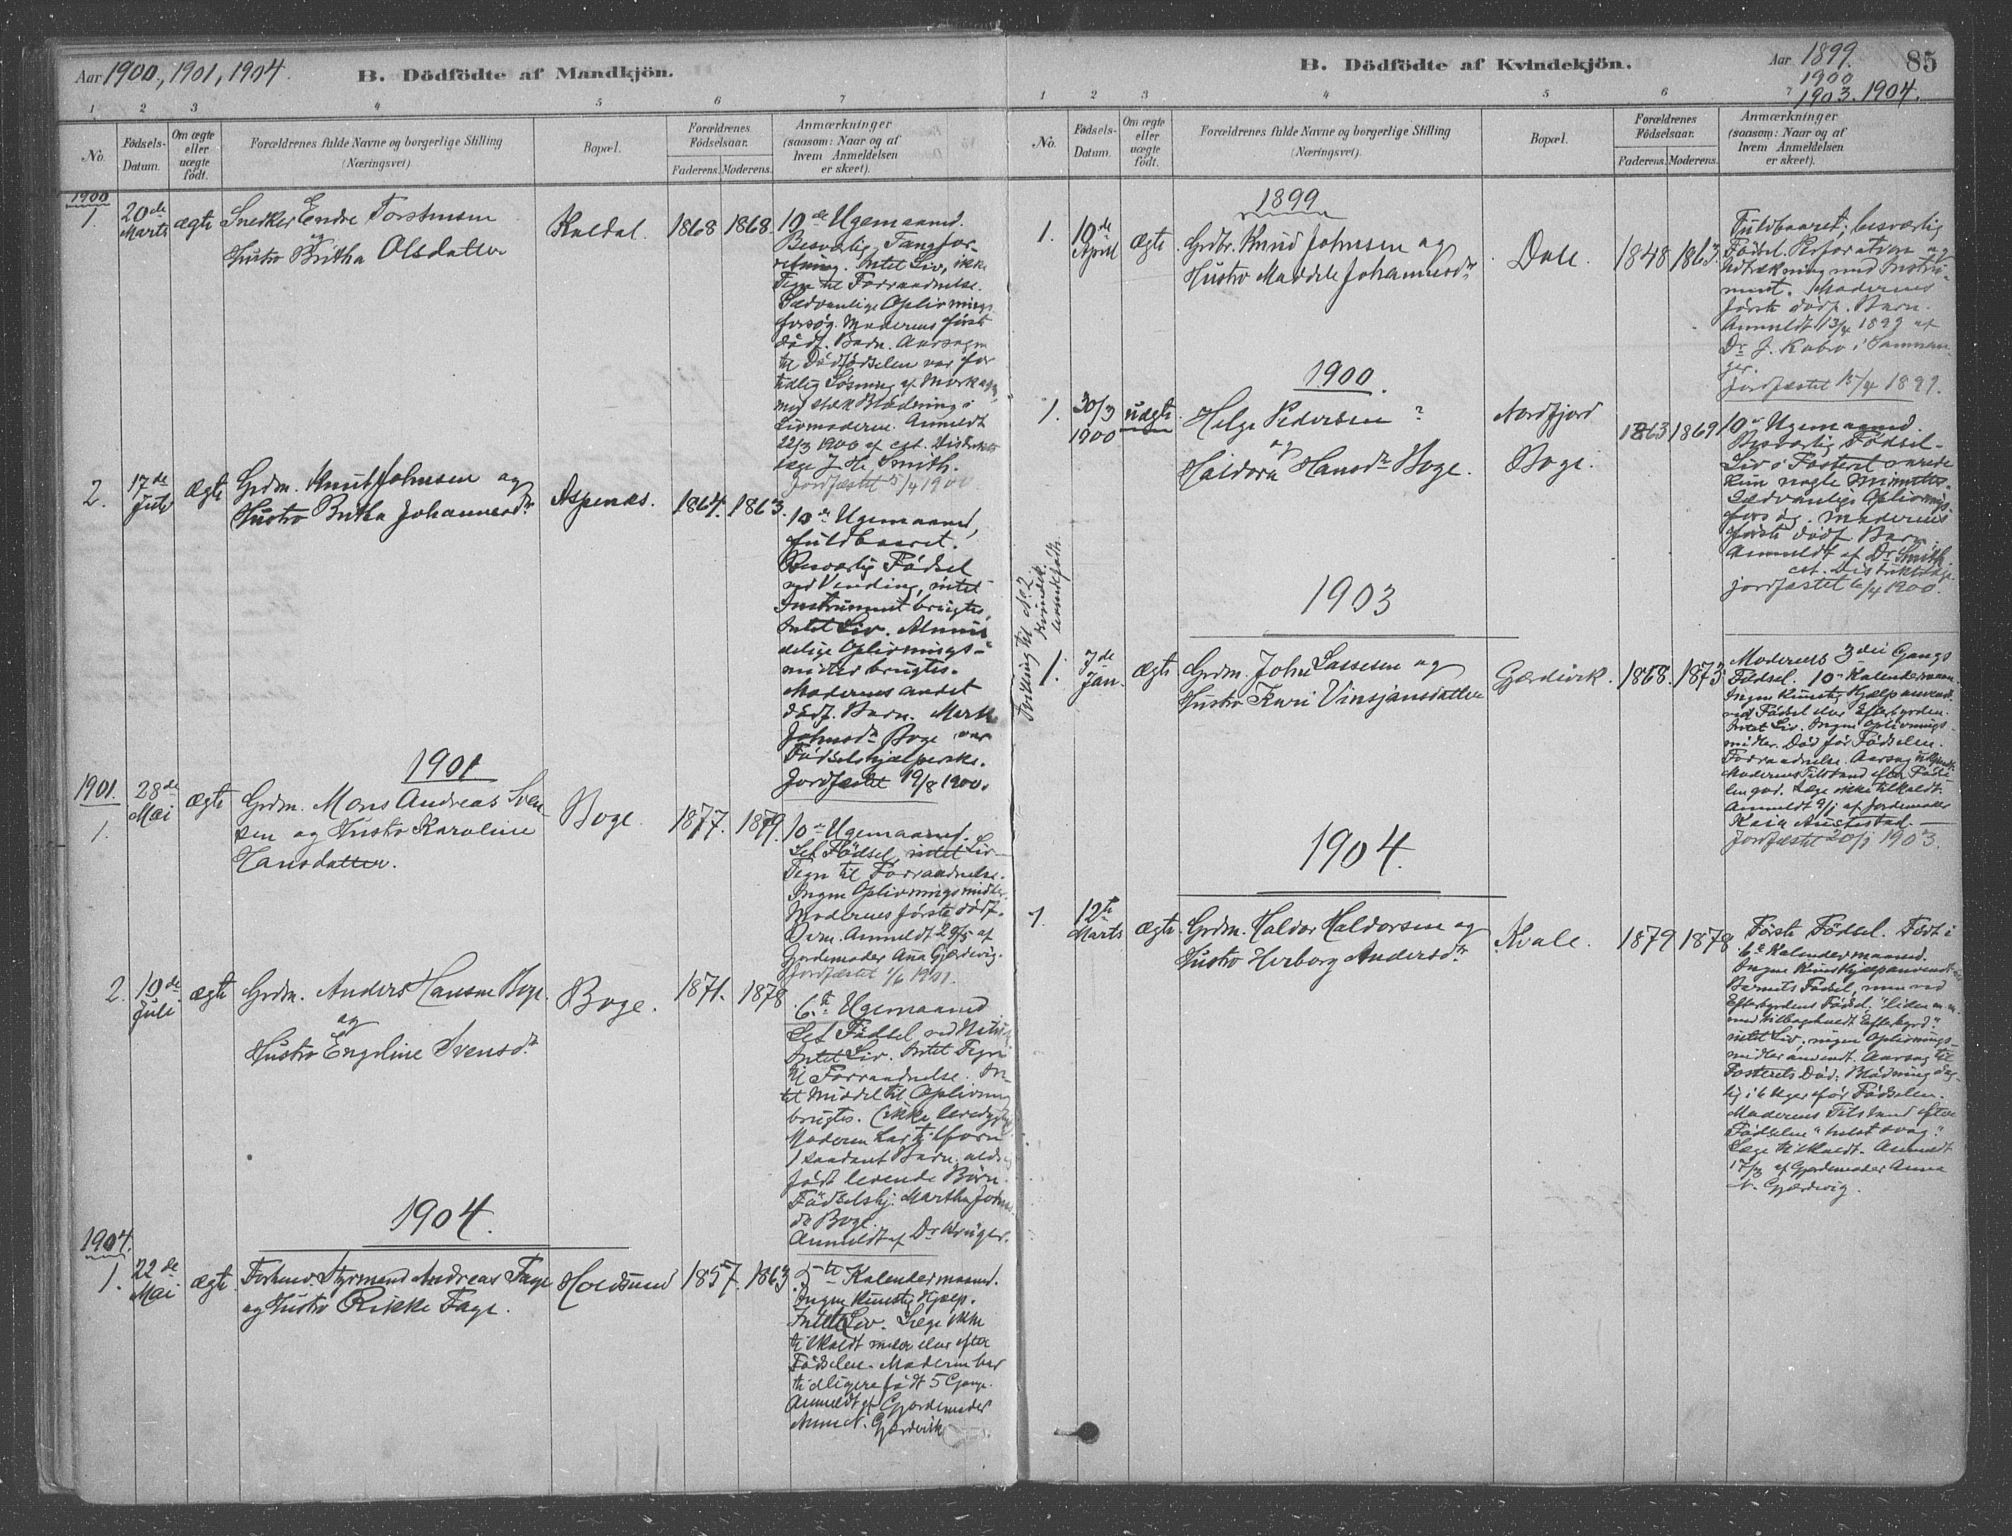 Aar 1900, 1901, 1904.
B. Dödfödte af Mandkjön.
1 2 3 4 5 6 7
No.
Födsels-Datum.
Om ægte eller uægte födt.
Forældrenes fulde Navne og borgerlige Stilling
(Næringsvei).
Bopæl.
Forældrenes Födselsaar.
Faderens. Moderens.
Anmærkninger
(saasom: Naar og af
hvem Anmeldelsen
er skeet).
1900
1. 20de Marts ægte Snedker Endre Torstensen
og
Hustro Britha Olsdatter
Kaldal. 1868 1868.
10de Ugemaaned.
Besværlig Tangfor-
retning. Intet Liv, ikke
Tegn til Forraadnelse.
Sædvanlige Oplivnings
forsøg. Moderens første
dödf. Barn. Aarsagen
til Dödfødselen var for
tidlig Løsning af Morkagen
med stærk Blødning i
Livmoderen. Anmeldt
22/3 1900 af cst. Distrikts
læge J. H. Smith.
Jordfæstet 5/4 1900.
2. 17de Juli ægte Grdm. Knut Johnsen og
Hustro Britha Johannesdr
Aspenæs. 1864. 1863.
10de Ugemaaned,
fuldbaaret.
Besværlig Fødsel
ved Vending, intet
Instrument brugtes.
Intet Liv. Almin-
delige Oplivnings-
midler brugtes.
Moderens andet
dødf. Barn.
Johnsdr Boge var
Fødselshjælperske.
Jordfæstet 19/8 1900.
1901
1901.
1. 28de Mai ægte Grdm. Mons Andreas Sven-
sen og Hustro Karoline
Hansdatter.
Boge. 1877. 1879.
10de Ugemaaned.
Let Fødsel, intet Liv-
Tegn til Forraadnelse.
Ingen Oplivningsmidler.
Moderens første dødf.
Barn. Anmeldt 29/5 af
Gjordemoder Ana Gjærdvig.
Jordfæstet 1/6 1901.
2. 10de Juli ægte Grdm. Anders Hansen Boge
og
Hustro Engeline Svensdr
Boge. 1871. 1878
6te Ugemaaned
Let Fødsel ved
Intet Liv. Intet Tegn
til Forraadnelse. In-
tet Middel til Oplivning
brugtes.
Moderen har tilforn
1 saadant Barn, aldrig
født levende Børn.
Fødselshj. Martha Johns-
dr Boge.
Anmeldt af Dr Krüger.
1904.
1904.
1. 22de Mai ægte Forhenv. Styrmand Andreas Fage
og Hustro Rikke Fage.
Holdsund 1857. 1863.
5te Kalendermaaned.
Ingen Kunstig Hjælp.
Intet Liv. Læge ikke
tilkaldt under eller efter
Fødselen. Moderen har
tidligere født 5 Gange.
Anmeldt af Gjordemoder
Anna N. Gjærdvik
B. Dödfödte af Kvindekjön.
Aar 1899.
1900
1903. 1904.
85
1 2 3 4 5 6 7
No.
Födsels-Datum.
Om ægte eller uægte födt.
Forældrenes fulde Navne og borgerlige Stilling
(Næringsvei).
Bopæl.
Forældrenes Födselsaar.
Faderens. Moderens.
Anmærkninger
(saasom: Naar og af
hvem Anmeldelsen
er skeet).
1899
1. 10de April ægte Grdbr. Knud Johnsen og
Hustro Maddele Johannesdr
Dale. 1848 1863.
Fuldbaaret, besværlig
Fødsel. Perforation og
Udtrækning med Instru-
ment. Moderens
første dødf. Barn.
Anmeldt 13/4 1899 af
Dr J. Kobro i Samnan-
ger.
Jordfæstet 15/4 1899.
1900.
1. 30/3 1900 uægte Helge Pedersen ?
og
Haldora Hansdr Boge.
Nordfjord
Boge.
1863 1869
10de Ugemaaned.
Besværlig Fødsel-
Liv i Fosteret
kun nogle Minutter.
Sædvanlige Oplivnings-
forsøg. Moderens
første dödf Barn.
Anmeldt af Dr Smith.
cst. Distriktslæge
jordfæstet 6/4 1900.
Tvilling til No 2 Kvindek. levendefødte.
1903
1. 7de Jan. ægte Grdm. John Lassesen og
Hustro Kari Vinsjansdatter
Gjærdvik. 1868. 1873
Moderens 3die Gangs
Fødsel. 10de Kalendermaan.
Ingen Kunstig Hjælp anvendt
ved Fødsel eller Efterbyrden.
Intet Liv. Ingen Oplivnings-
midler. Død før Fødselen.
Forraadnelse. Aarsag
Moderens Tilstand efter Føds-
len god. Læge ikke tilkaldt.
Anmeldt 9/1 af Jordemoder
Kaia Austestad.
Jordfæstet 20/1 1903.
1904.
1. 12te Marts ægte Grdm. Haldor Haldorsen og
Hustro Herborg Andersdr
Kvale. 1879 1878
Første Fødsel. Født i
6te Kalendermaaned.
Ingen Kunsthjælp anvendt
Barnets Fødsel, men ved
Efterbyrdens Fødsel,
med tilbageholdt Efterbyrd."
intet Liv, ingen Oplivnings-
midler anvendt. Aarsag til
Fosterets Død: Blødning dag-
lig i 6 Uger før Fødselen.
Moderens Tilstand efter
Fødselen "svag."
Læge tilkaldt. Anmeldt
17/3 af Gjordemoder Anna
N. Gjærdvig.